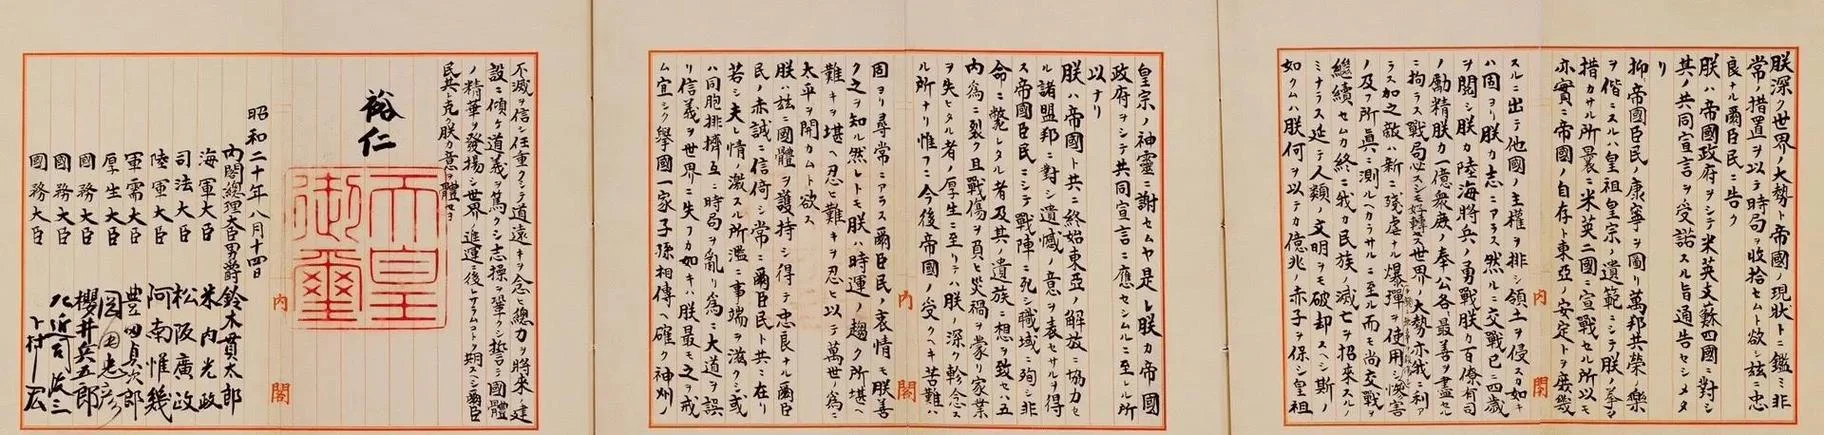 朕深ク世界ノ大勢ト帝國ノ現狀トニ鑑ミ非
常ノ措置ヲ以テ時局ヲ收拾セムト欲シ玆ニ忠
良ナル爾臣民ニ告ク
朕ハ帝國政府ヲシテ米英支蘇四國ニ對シ
其ノ共同宣言ヲ受諾スル旨通告セシメタ
リ
抑〻帝國臣民ノ康寧ヲ圖リ萬邦共榮ノ樂
ヲ偕ニスルハ皇祖皇宗ノ遺範ニシテ朕ノ拳々
措カサル所曩ニ米英二國ニ宣戰セル所以モ
亦實ニ帝國ノ自存ト東亞ノ安定トヲ庶幾
スルニ出テ他國ノ主權ヲ排シ領土ヲ侵スカ如キ
ハ固ヨリ朕カ志ニアラス然ルニ交戰已ニ四歲
ヲ閱シ朕カ陸海將兵ノ勇戰朕カ百僚有司
ノ勵精朕カ一億衆庶ノ奉公各〻最善ヲ盡セル
ニ拘ラス戰局必スシモ好轉セス世界ノ大勢亦我ニ利ア
ラス加之敵ハ新ニ殘虐ナル爆彈ヲ使用シテ頻ニ無辜ヲ殺傷シ慘害
ノ及フ所眞ニ測ルヘカラサルニ至ル而モ尚交戰ヲ
繼續セムカ終ニ我カ民族ノ滅亡ヲ招來スルノ
ミナラス延テ人類ノ文明ヲモ破却スヘシ斯ノ
如クムハ朕何ヲ以テカ億兆ノ赤子ヲ保シ皇祖
內閣
皇宗ノ神靈ニ謝セムヤ是レ朕カ帝國
政府ヲシテ共同宣言ニ應セシムルニ至レル所
以ナリ
朕ハ帝國ト共ニ終始東亞ノ解放ニ協力セ
ル諸盟邦ニ對シ遺憾ノ意ヲ表セサルヲ得
ス帝國臣民ニシテ戰陣ニ死シ職域ニ殉シ非
命ニ斃レタル者及其ノ遺族ニ想ヲ致セハ五
內爲ニ裂ク且戰傷ヲ負ヒ災禍ヲ蒙リ家業
ヲ失ヒタル者ノ厚生ニ至リテハ朕ノ深ク軫念ス
ル所ナリ惟フニ今後帝國ノ受クヘキ苦難ハ
固ヨリ尋常ニアラス爾臣民ノ衷情モ朕善
ク之ヲ知ル然レトモ朕ハ時運ノ趨ク所堪ヘ
難キヲ堪ヘ忍ヒ難キヲ忍ヒ以テ萬世ノ爲ニ
太平ヲ開カムト欲ス
朕ハ玆ニ國體ヲ護持シ得テ忠良ナル爾臣
民ノ赤誠ニ信倚シ常ニ爾臣民ト共ニ在リ
若シ夫レ情ノ激スル所濫ニ事端ヲ滋クシ或
ハ同胞排擠互ニ時局ヲ亂リ爲ニ大道ヲ誤
リ信義ヲ世界ニ失フカ如キハ朕最モ之ヲ戒
ム宜シク擧國一家子孫相傳ヘ確ク神州ノ
內閣
不滅ヲ信シ任重クシテ道遠キヲ念ヒ總力ヲ將來ノ建
設ニ傾ケ道義ヲ篤クシ志操ヲ鞏クシ誓テ國體
ノ精華ヲ發揚シ世界ノ進運ニ後レサラムコトヲ期スヘシ爾臣
民其レ克ク朕カ意ヲ體セヨ
裕仁
天皇
御璽
昭和二十年八月十四日
內閣總理大臣男爵 鈴木貫太郎
海軍大臣 米內光政
司法大臣 松阪廣政
陸軍大臣 阿南惟幾
軍需大臣 豊田貞次郎
厚生大臣 岡田忠彦
國務大臣 櫻井兵五郎
國務大臣 左近司政三
國務大臣 下村宏
內閣